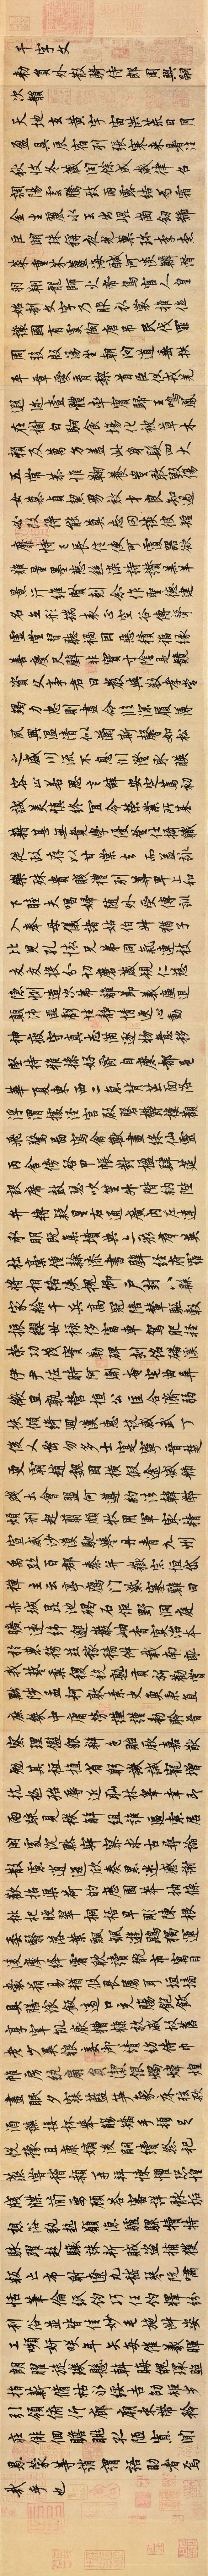 千字文
敕員外散騎侍郎周興嗣
次韻
天地玄黃宇宙洪荒日月
盈昃辰宿列張寒來暑往
秋收冬藏閏餘成歲律呂
調陽雲騰致雨露結為霜
金生麗水玉出崑崗劍號
巨闕珠稱夜光菓珍李柰
菜重芥薑海鹹河淡鱗潛
羽翔龍師火帝鳥官人皇
始制文字乃服衣裳推位
讓國有虞陶唐弔民伐罪
周發殷湯坐朝問道垂拱
平章愛育黎首臣伏戎羌
遐邇壹體率賓歸王鳴鳳
在樹白駒食場化被草木
賴及萬方蓋此身髮四大
五常恭惟鞠養豈敢毀傷
女慕貞絜男效才良知過
必改得能莫忘罔談彼短
靡恃己長信使可覆器欲
難量墨悲絲染詩讚羔羊
景行維賢剋念作聖德建
名立形端表正空谷傳聲
虛堂習聽禍因惡積福緣
善慶尺璧非寶寸陰是競
資父事君曰嚴與敬孝當
竭力忠則盡命臨深履薄
夙興溫凊似蘭斯馨如松
之盛川流不息淵澄取暎
容止若思言辭安定篤初
誠美慎終宜令榮業所基
籍甚無竟學優登仕攝職
從政存以甘棠去而益詠
樂殊貴賤禮別尊卑上和
下睦夫唱婦隨外受傅訓
入奉母儀諸姑伯叔猶子
比兒孔懷兄弟同氣連枝
交友投分切磨箴規仁慈
隱惻造次弗離節義廉退
顛沛匪虧性靜情逸心動
神疲守真志滿逐物意移
堅持雅操好爵自縻都邑
華夏東西二京背芒面洛
浮渭據涇宮殿盤鬱樓觀
飛驚圖寫禽獸畫綵仙靈
丙舍傍啟甲帳對楹肆筵
設席鼓瑟吹笙升階納陛
弁轉疑星右通廣內左達
承明既集墳典亦聚群英
杜稾鍾隸漆書壁經府羅
將相路俠槐卿戶封八縣
家給千兵高冠陪輦驅轂
振纓世祿侈富車駕肥輕
策功茂實勒碑刻銘磻溪
伊尹佐時阿衡奄宅曲阜
微旦孰營桓公匡合濟弱
扶傾綺迴漢惠說感武丁
俊乂密勿多士寔寧晉楚
更霸趙魏困橫假途滅虢
踐土會盟何遵約法韓弊
煩刑起翦頗牧用軍最精
宣威沙漠馳譽丹青九州
禹跡百郡秦并嶽宗恒岱
禪主云亭鴈門紫塞雞田
赤城昆池碣石鉅野洞庭
曠遠綿邈巖岫杳冥治本
於農務茲稼穡俶載南畝
我藝黍稷稅熟貢新勸賞
黜陟孟軻敦素史魚秉直
庶幾中庸勞謙謹敕聆音
察理鑑貌辨色貽厥嘉猷
勉其祗植省躬譏誡寵增
抗極殆辱近恥林皋幸即
兩疏見機解組誰逼索居
閒處沉默寂寥求古尋論
散慮逍遙欣奏累遣慼謝
歡招渠荷的歷園莽抽條
枇杷晚翠梧桐早凋陳根
委翳落葉飄颻遊鵾獨運
凌摩絳霄耽讀翫市寓目
囊箱易輶攸畏屬耳垣牆
具膳飡飯適口充腸飽飫
享宰飢厭糟糠親戚故舊
老少異糧妾御績紡侍巾
帷房紈扇圓絜銀燭煒煌
晝眠夕寐藍笋象床弦歌
酒讌接杯舉觴矯手頓足
悅豫且康嫡後嗣續祭祀
蒸嘗稽顙再拜悚懼恐惶
牋牒簡要顧答審詳骸垢
想浴執熱願涼驢騾犢特
駭躍超驤誅斬賊盜捕獲
叛亡布射遼丸嵇琴阮嘯
恬筆倫紙鈞巧任釣釋紛
利俗並皆佳妙毛施淑姿
工顰妍笑年矢每催羲暉
朗曜璇璣懸斡晦魄環照
指薪修祜永綏吉劭矩步
引領俯仰廊廟束帶矜
莊徘徊瞻眺孤陋寡聞
愚蒙等誚謂語助者焉
哉乎也